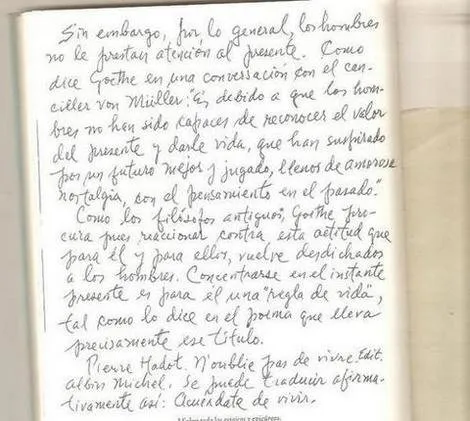 Sin embargo, por lo general, los hombres
no le prestan atención al presente. Como
dice Goethe en una conversación con el can-
ciller von Müller: "Es debido a que los hom-
bres no han sido capaces de reconocer el valor
del presente y darle vida, que han suspirado
por un futuro mejor y jugado, llenos de amorosa
nostalgia, con el pensamiento en el pasado".
Como los filósofos antiguos, Goethe pro-
cura pues reaccionar contra esta actitud que
para él y para ellos, vuelve desdichados
a los hombres. Concentrarse en el instante
presente es para él una "regla de vida",
tal como lo dice en el poema que lleva
precisamente ese título.
Pierre Hadot. N'oublie pas de vivre. Edit.
Albin Michel. Se puede traducir afirma-
tivamente así: Acuérdate de vivir.